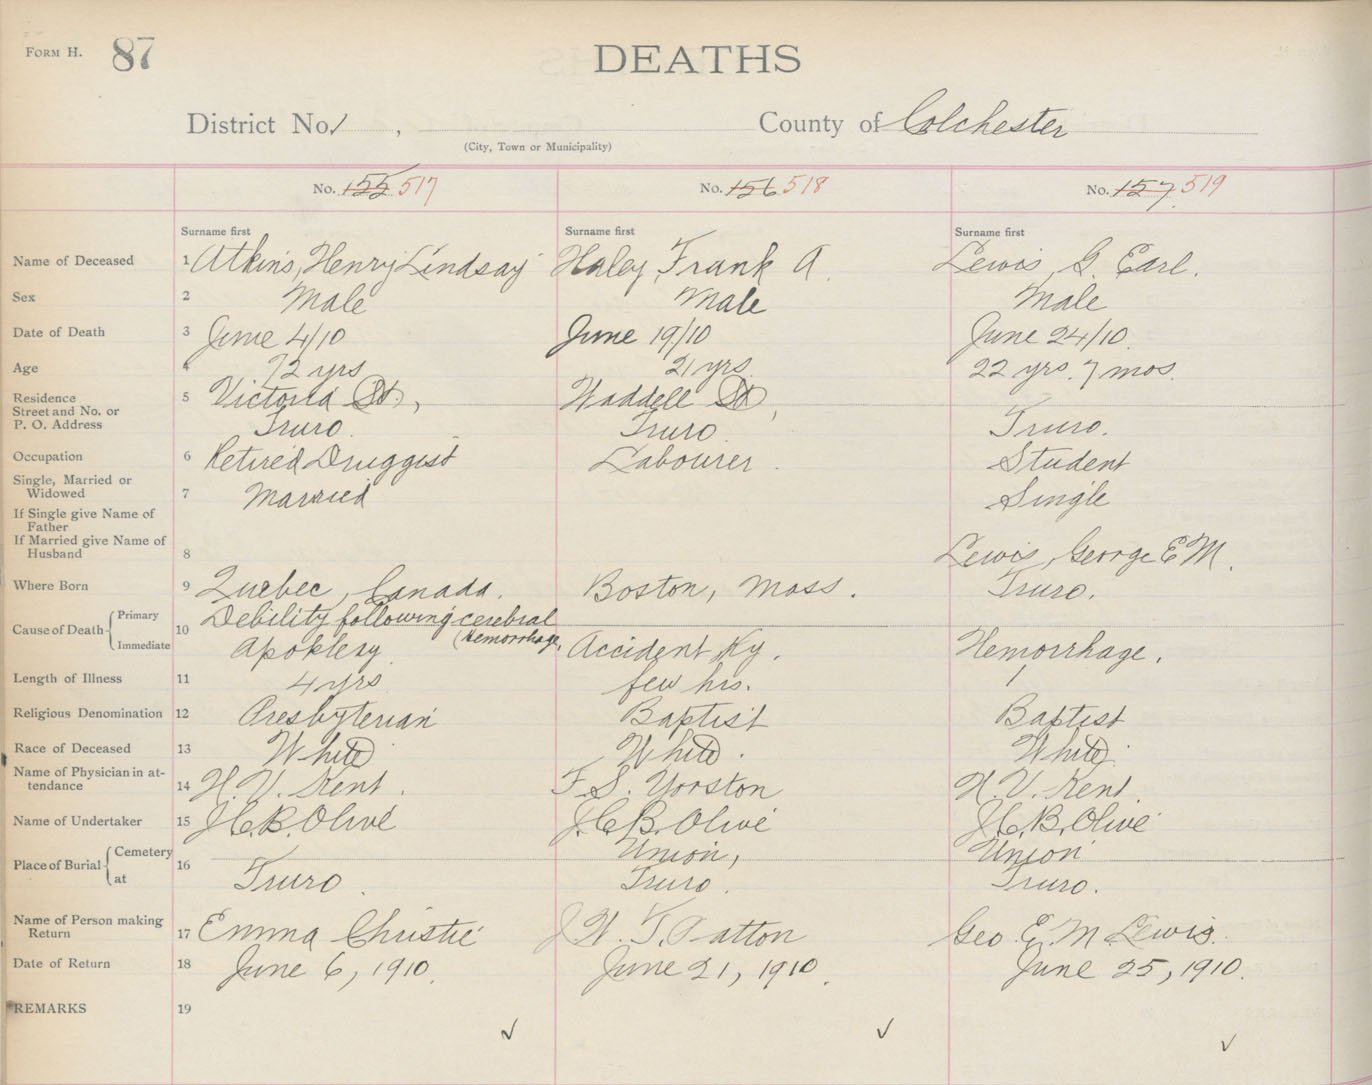 FORM H. 87 DEATHS
District No. 1 , County of Colchester
(City, Town or Municipality)
No. 155 517 No. 156 518 No. 157 519
Surname first Surname first Surname first
Name of Deceased 1 Atkins, Henry Lindsay Haley, Frank A. Lewis, G. Earl.
Sex 2 Male Male Male
Date of Death 3 June 4/10 June 19/10 June 24/10.
Age 4 72 yrs 21 yrs. 22 yrs. 7 mos.
Residence 5 Victoria St., Waddell St,
Street and No. or
P. O. Address Truro. Truro. Truro.
Occupation 6 Retired Druggist Labourer. Student
Single, Married or
Widowed 7 Married Single
If Single give Name of
Father
If Married give Name of
Husband 8 Lewis, George E M.
Where Born 9 Quebec, Canada. Boston, Mass. Truro.
Cause of Death Primary Debility following cerebral
10 (Hemorrhage,
Immediate Apoklery. Accident Ry. Hemorrhage.
Length of Illness 11 4 yrs few hrs. 1
Religious Denomination 12 Presbyterian Baptist Baptist
Race of Deceased 13 White White. White.
Name of Physician in at-
tendance 14 H. V. Kent. F. S. Yorston H. V. Kent.
Name of Undertaker 15 J.C.B. Olive J.C.B. Olive J.C.B. Olive
Place of Burial Cemetery 16 Union, Union
at Truro. Truro. Truro.
Name of Person making
Return 17 Emma Christie J W. T. Patton Geo E. M Lewis.
Date of Return 18 June 6, 1910. June 21, 1910. June 25, 1910.
REMARKS 19
✓ ✓ ✓